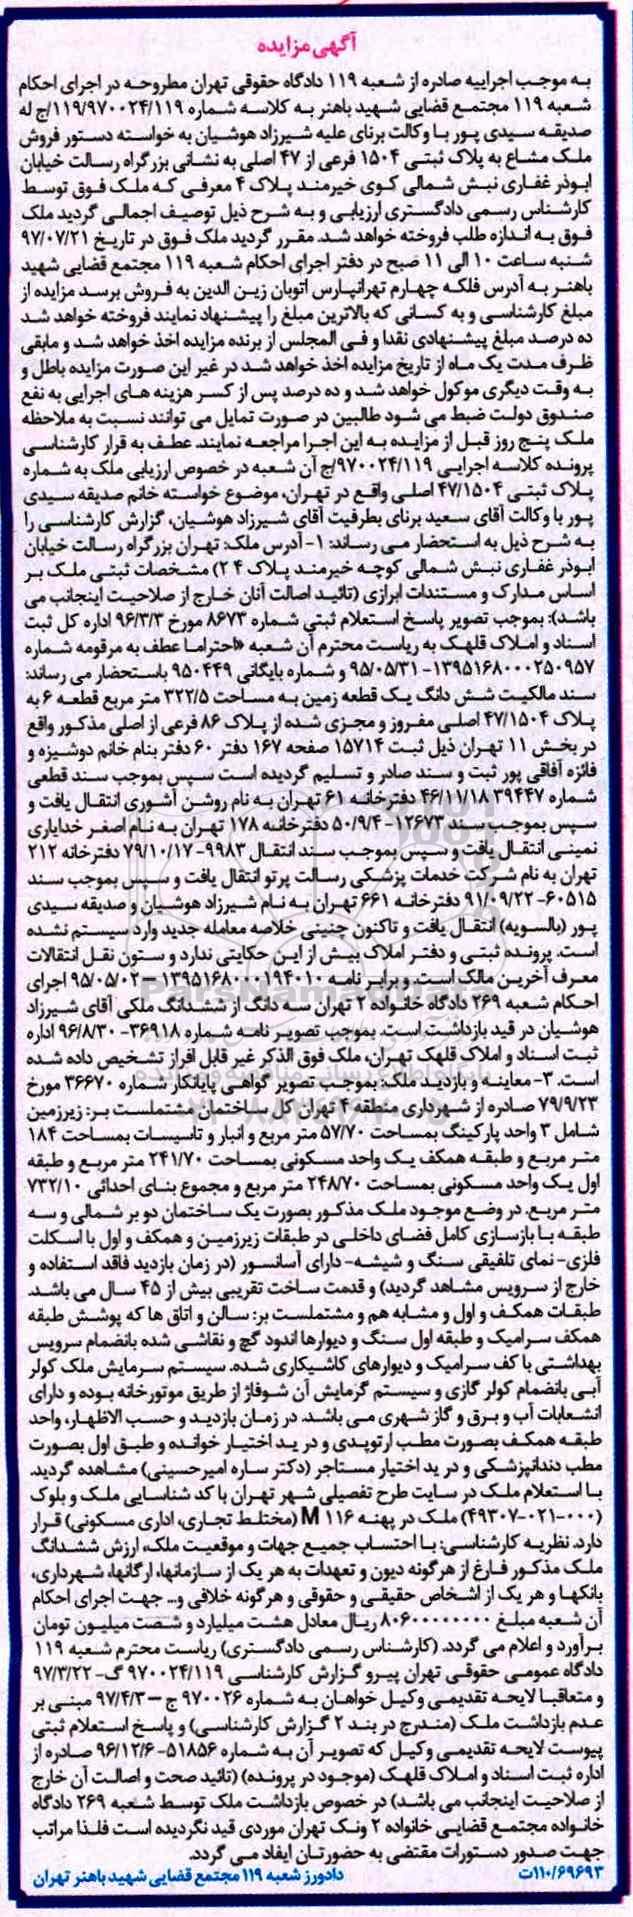 آگهی مزایده
به موجب اجراییه صادره از شعبه ۱۱۹ دادگاه حقوقی تهران مطروحه در اجرای احکام
شعبه ۱۱۹ مجتمع قضایی شهید باهنر به کلاسه شماره ۱۱۹/۹۷۰۰۲۴/۱۱۹/ج له
صدیقه سیدی پور با وکالت برنای علیه شیرزاد هوشیان به خواسته دستور فروش
ملک مشاع به پلاک ثبتی ۱۵۰۴ فرعی از ۴۷ اصلی به نشانی بزرگراه رسالت خیابان
ابوذر غفاری نبش شمالی کوی خیرمند پلاک ۴ معرفی که ملک فوق توسط
کارشناس رسمی دادگستری ارزیابی و به شرح ذیل توصیف اجمالی گردید ملک
فوق به اندازه طلب فروخته خواهد شد. مقرر گردید ملک فوق در تاریخ ۹۷/۰۷/۲۱
شنبه ساعت ۱۰ الی ۱۱ صبح در دفتر اجرای احکام شعبه ۱۱۹ مجتمع قضایی شهید
باهنر به آدرس فلکه چهارم تهرانپارس اتوبان زین الدین به فروش برسد مزایده از
مبلغ کارشناسی و به کسانی که بالاترین مبلغ را پیشنهاد نمایند فروخته خواهد شد
ده درصد مبلغ پیشنهادی نقدا و فی المجلس از برنده مزایده اخذ خواهد شد و مابقی
ظرف مدت یک ماه از تاریخ مزایده اخذ خواهد شد در غیر این صورت مزایده باطل و
به وقت دیگری موکول خواهد شد و ده درصد پس از کسر هزینه های اجرایی به نفع
صندوق دولت ضبط می شود طالبین در صورت تمایل می توانند نسبت به ملاحظه
ملک پنج روز قبل از مزایده به این اجرا مراجعه نمایند. عطف به قرار کارشناسی
پرونده کلاسه اجرایی ۹۷۰۰۲۴/۱۱۹/ج آن شعبه در خصوص ارزیابی ملک به شماره
پلاک ثبتی ۴۷/۱۵۰۴ اصلی واقع در تهران، موضوع خواسته خانم صدیقه سیدی
پور با وکالت آقای سعید برنای بطرفیت آقای شیرزاد هوشیان، گزارش کارشناسی را
به شرح ذیل به استحضار می رساند: ۱- آدرس ملک: تهران بزرگراه رسالت خیابان
ابوذر غفاری نبش شمالی کوچه خیرمند پلاک ۴ ۲) مشخصات ثبتی ملک بر
اساس مدارک و مستندات ابرازی (تائید اصالت آنان خارج از صلاحیت اینجانب می
باشد): بموجب تصویر پاسخ استعلام ثبتی شماره ۸۶۷۳ مورخ ۹۶/۳/۳ اداره کل ثبت
اسناد و املاک قلهک به ریاست محترم آن شعبه «احتراما عطف به مرقومه شماره
۱۳۹۵۱۶۸۰۰۰۲۵۰۹۵۷- ۹۵/۰۵/۳۱ و شماره بایگانی ۹۵۰۴۴۹ باستحضار می رساند:
سند مالکیت شش دانگ یک قطعه زمین به مساحت ۳۲۲/۵ متر مربع قطعه ۶ به
پلاک ۴۷/۱۵۰۴ اصلی مفروز و مجزی شده از پلاک ۸۶ فرعی از اصلی مذکور واقع
در بخش ۱۱ تهران ذیل ثبت ۱۵۷۱۴ صفحه ۱۶۷ دفتر ۶۰ دفتر بنام خانم دوشیزه و
فائزه آفاقی پور ثبت و سند صادر و تسلیم گردیده است سپس بموجب سند قطعی
شماره ۳۹۴۴۷ ۴۶/۱۱/۱۸ دفترخانه ۶۱ تهران به نام روشن آشوری انتقال یافت و
سپس بموجب سند ۱۲۶۷۳- ۵۰/۹/۴ دفترخانه ۱۷۸ تهران به نام اصغر خدایاری
نمینی انتقال یافت و سپس بموجب سند انتقال ۹۹۸۳- ۷۹/۱۰/۱۷ دفترخانه ۲۱۲
تهران به نام شرکت خدمات پزشکی رسالت پرتو انتقال یافت و سپس بموجب سند
۶۰۵۱۵- ۹۱/۰۹/۲۲ دفترخانه ۶۶۱ تهران به نام شیرزاد هوشیان و صدیقه سیدی
پور (بالسویه) انتقال یافت و تاکنون چنینی خلاصه معامله جدید وارد سیستم نشده
است. پرونده ثبتی و دفتر املاک بیش از این حکایتی ندارد و ستون نقل انتقالات
معرف آخرین مالک است. برابر نامه ۱۳۹۵۱۶۸۰۰۰۱۹۴۰۱۰- ۹۵/۰۵/۰۲ اجرای
احکام شعبه ۲۶۹ دادگاه خانواده ۲ تهران سه دانگ از ششدانگ ملکی آقای شیرزاد
هوشیان در قید بازداشت است. بموجب تصویر نامه شماره ۳۶۹۱۸- ۹۶/۸/۳۰ اداره
ثبت اسناد و املاک قلهک تهران، ملک فوق الذکر غیر قابل افراز تشخیص داده شده
است. ۳- معاینه و بازدید ملک: بموجب تصویر گواهی پایانکار شماره ۳۶۶۷۰ مورخ
۷۹/۹/۲۳ صادره از شهرداری منطقه ۴ تهران کل ساختمان مشتملست بر: زیرزمین
شامل ۳ واحد پارکینگ بمساحت ۵۷/۷۰ متر مربع و انبار و تاسیسات بمساحت ۱۸۴
متر مربع و طبقه همکف یک واحد مسکونی بمساحت ۲۴۱/۷۰ متر مربع و طبقه
اول یک واحد مسکونی بمساحت ۲۴۸/۷۰ متر مربع و مجموع بنای احداثی ۷۳۲/۱۰
متر مربع. در وضع موجود ملک مذکور بصورت یک ساختمان دو بر شمالی و سه
طبقه با بازسازی کامل فضای داخلی در طبقات زیرزمین و همکف و اول با اسکلت
فلزی- نمای تلفیقی سنگ و شیشه- دارای آسانسور (در زمان بازدید فاقد استفاده و
خارج از سرویس مشاهد گردید) و قدمت ساخت تقریبی بیش از ۴۵ سال می باشد.
طبقات همکف و اول و مشابه هم و مشتملست بر: سالن و اتاق ها که پوشش طبقه
همکف سرامیک و طبقه اول سنگ و دیوارها اندود گچ و نقاشی شده بانضمام سرویس
بهداشتی با کف سرامیک و دیوارهای کاشیکاری شده. سیستم سرمایش ملک کولر
آبی بانضمام کولر گازی و سیستم گرمایش آن شوفاژ از طریق موتورخانه بوده و دارای
انشعابات آب و برق و گاز شهری می باشد. در زمان بازدید و حسب الاظهار، واحد
طبقه همکف بصورت مطب ارتوپدی و در ید اختیار خوانده و طبق اول بصورت
مطب دندانپزشکی و در ید اختیار مستاجر (دکتر ساره امیرحسینی) مشاهده گردید.
با استعلام ملک در سایت طرح تفصیلی شهر تهران با کد شناسایی ملک و بلوک
(۰۰۰-۰۲۱-۴۹۳۰۷) ملک در پهنه M ۱۱۶ (مختلط تجاری، اداری مسکونی) قرار
دارد. نظریه کارشناسی: با احتساب جمیع جهات و موقعیت ملک، ارزش ششدانگ
ملک مذکور فارغ از هرگونه دیون و تعهدات به هر یک از سازمانها، ارگانها، شهرداری،
بانکها و هر یک از اشخاص حقیقی و حقوقی و هرگونه خلافی و... جهت اجرای احکام
آن شعبه مبلغ ۸۰۶۰۰۰۰۰۰۰۰ ریال معادل هشت میلیارد و شصت میلیون تومان
برآورد و اعلام می گردد. (کارشناس رسمی دادگستری) ریاست محترم شعبه ۱۱۹
دادگاه عمومی حقوقی تهران پیرو گزارش کارشناسی ۹۷۰۰۲۴/۱۱۹ گ- ۹۷/۳/۲۲
و متعاقبا لایحه تقدیمی وکیل خواهان به شماره ۹۷۰۰۲۶ ج – ۹۷/۴/۳ مبنی بر
عدم بازداشت ملک (مندرج در بند ۲ گزارش کارشناسی) و پاسخ استعلام ثبتی
پیوست لایحه تقدیمی وکیل که تصویر آن به شماره ۵۱۸۵۶- ۹۶/۱۲/۶ صادره از
اداره ثبت اسناد و املاک قلهک (موجود در پرونده) (تائید صحت و اصالت آن خارج
از صلاحیت اینجانب می باشد) در خصوص بازداشت ملک توسط شعبه ۲۶۹ دادگاه
خانواده مجتمع قضایی خانواده ۲ ونک تهران موردی قید نگردیده است فلذا مراتب
جهت صدور دستورات مقتضی به حضورتان ایفاد می گردد.
۱۱۰/۶۹۶۹۳ت دادورز شعبه ۱۱۹ مجتمع قضایی شهید باهنر تهران